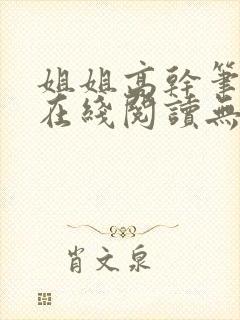 姐姐高幹筆
在綫閱讀無
肖文泉